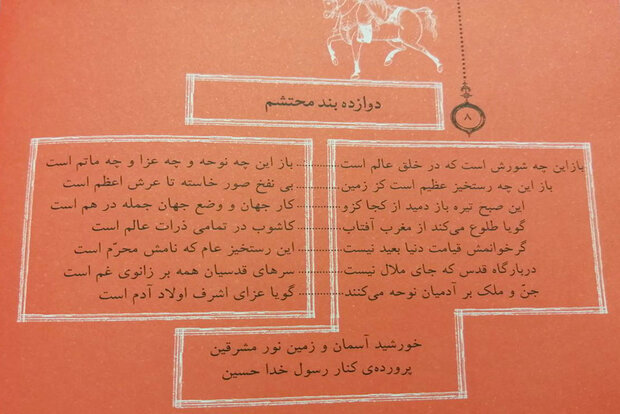 دوازده بند محتشم
۸
بازاین چه شورش است که در خلق عالم است ........... باز این چه نوحه و چه عزا و چه ماتم است
باز این چه رستخیز عظیم است کز زمین ........... بی نفخ صور خاسته تا عرش اعظم است
این صبح تیره باز دمید از کجا کزو ........... کار جهان و وضع جهان جمله در هم است
گویا طلوع می‌کند از مغرب آفتاب ........... کاشوب در تمامی ذرات عالم است
گرخوانمش قیامت دنیا بعید نیست ........... این رستخیز عام که نامش محرّم است
دربارگاه قدس که جای ملال نیست ........... سرهای قدسیان همه بر زانوی غم است
جنّ و ملک بر آدمیان نوحه می‌کنند ........... گویا عزای اشرف اولاد آدم است
خورشید آسمان و زمین نور مشرقین
پرورده‌ی کنار رسول خدا حسین